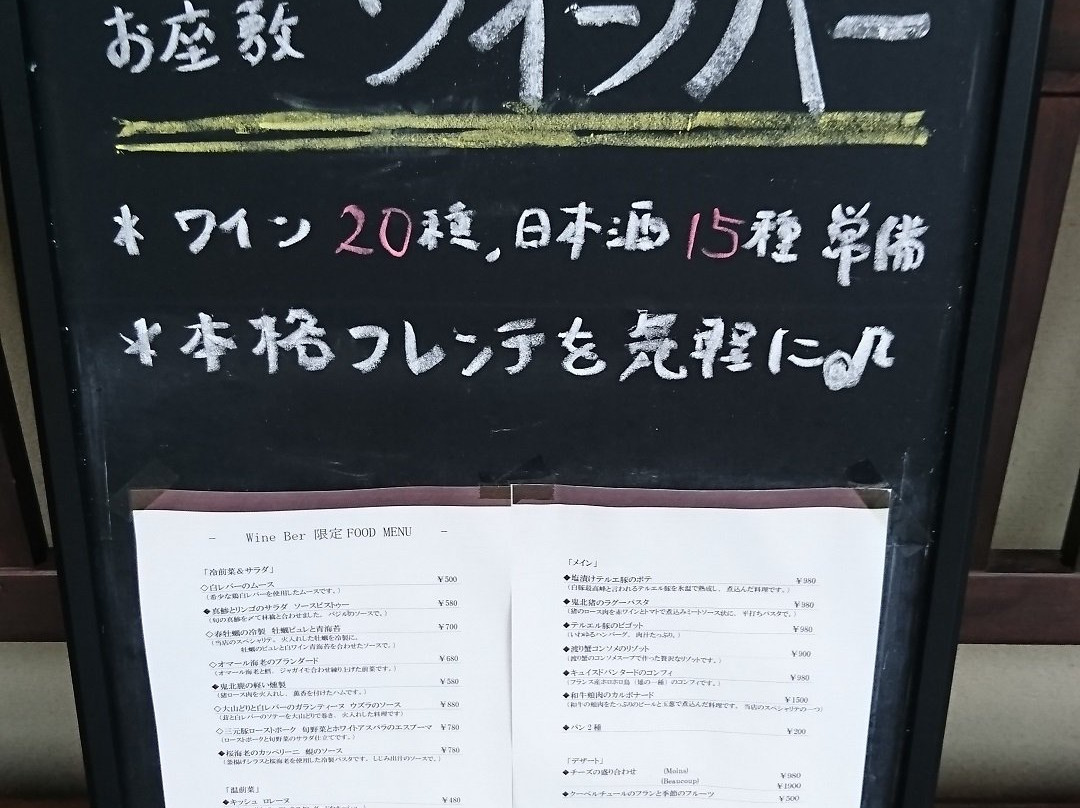 お座敷 ワインバー
* ワイン 20種, 日本酒 15種 常備
* 本格フレンチを気軽に♫
－ Wine Ber 限定 FOOD MENU －
「冷前菜&サラダ」
◇白レバーのムース ¥500
(希少な鶏白レバーを使用したムースです。)
◆真鯵とリンゴのサラダ ソースピストゥー ¥580
◇春牡蠣の冷製 牡蠣ピュレと青海苔 ¥700
(当店のスペシャリテ。火入れした牡蠣を冷製に。
牡蠣のピュレと白ワイン青海苔を合わせたソースで。)
◇オマール海老のブランダード ¥680
(オマール海老と鱈、ジャガイモ合わせ練り上げた前菜です。)
◆鬼北鹿の軽い燻製 ¥580
(猪ロース肉を火入れし、薫香を付けたハムです。)
◇大山どりと白レバーのガランティーヌ ウズラのソース ¥880
(茸と白レバーのソテーを大山どりで巻き、火入れした料理です)
◇三元豚ローストポーク 旬野菜とホワイトアスパラのエスプーマ ¥780
(ローストポークと旬野菜のサラダ仕立てです。)
◆桜海老のカッペリーニ 蜆のソース ¥780
(釜揚げシラスと桜海老を使用した冷製パスタです。しじみ出汁のソースで。)
「温前菜」
◆キッシュ ロレーヌ ¥480
「メイン」
◆塩漬けテルエ豚のポテ ¥980
(白豚最高峰と言われるテルエル豚を氷温で熟成し、煮込んだ料理です。)
◆鬼北猪のラグーパスタ ¥980
(猪のロース肉を赤ワインとトマトで煮込みミートソース状に、平打ちパスタで。)
◆テルエル豚のビゴット ¥980
(いわゆるハンバーグ、肉汁たっぷり。)
◆渡り蟹コンソメのリゾット ¥900
(渡り蟹のコンソメスープで作った贅沢なリゾットです。)
◆キュイスドパンタードのコンフィ ¥980
(フランス産ホロホロ鳥(雉の一種)のコンフィです。)
◆和牛頬肉のカルボナード ¥1500
(和牛の頬肉をたっぷりのビールと玉葱で煮込んだ料理です。当店のスペシャリテの一つ)
◆パン2種 ¥200
「デザート」
◆チーズの盛り合わせ (Moins) ¥980
(Beaucoup) ¥1900
◇クーベルチュールのフランと季節のフルーツ ¥500